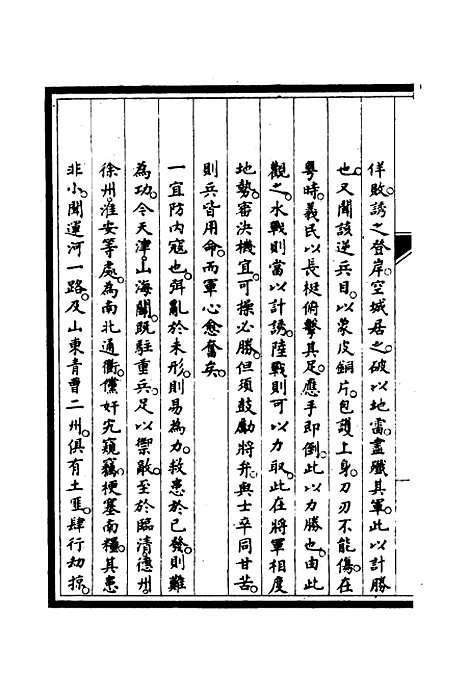 佯敗。誘之登岸。空城居之。破以地雷。盡殲其軍。此以計勝
也。又聞該逆兵目。以蒙皮銅片。包護上身。刀刃不能傷。在
粵時。義民以長梃俯擊其足。應手即倒。此以力勝也。由此
觀之。水戰則當以計誘。陸戰則可以力取。此在將軍相度
地勢。審決機宜。可操必勝。但須鼓勵將弁。與士卒同甘苦。
則兵皆用命。而軍心愈奮矣。
一宜防內寇也。弭亂於未形。則易為力。救患於已發。則難
為功。今天津山海關。既駐重兵。足以禦敵。至於臨清德州。
徐州淮安等處。為南北通衢。儻奸宄窺竊。梗塞南糧。其患
非小。聞運河一路。及山東青曹二州。俱有土匪。肆行劫掠。